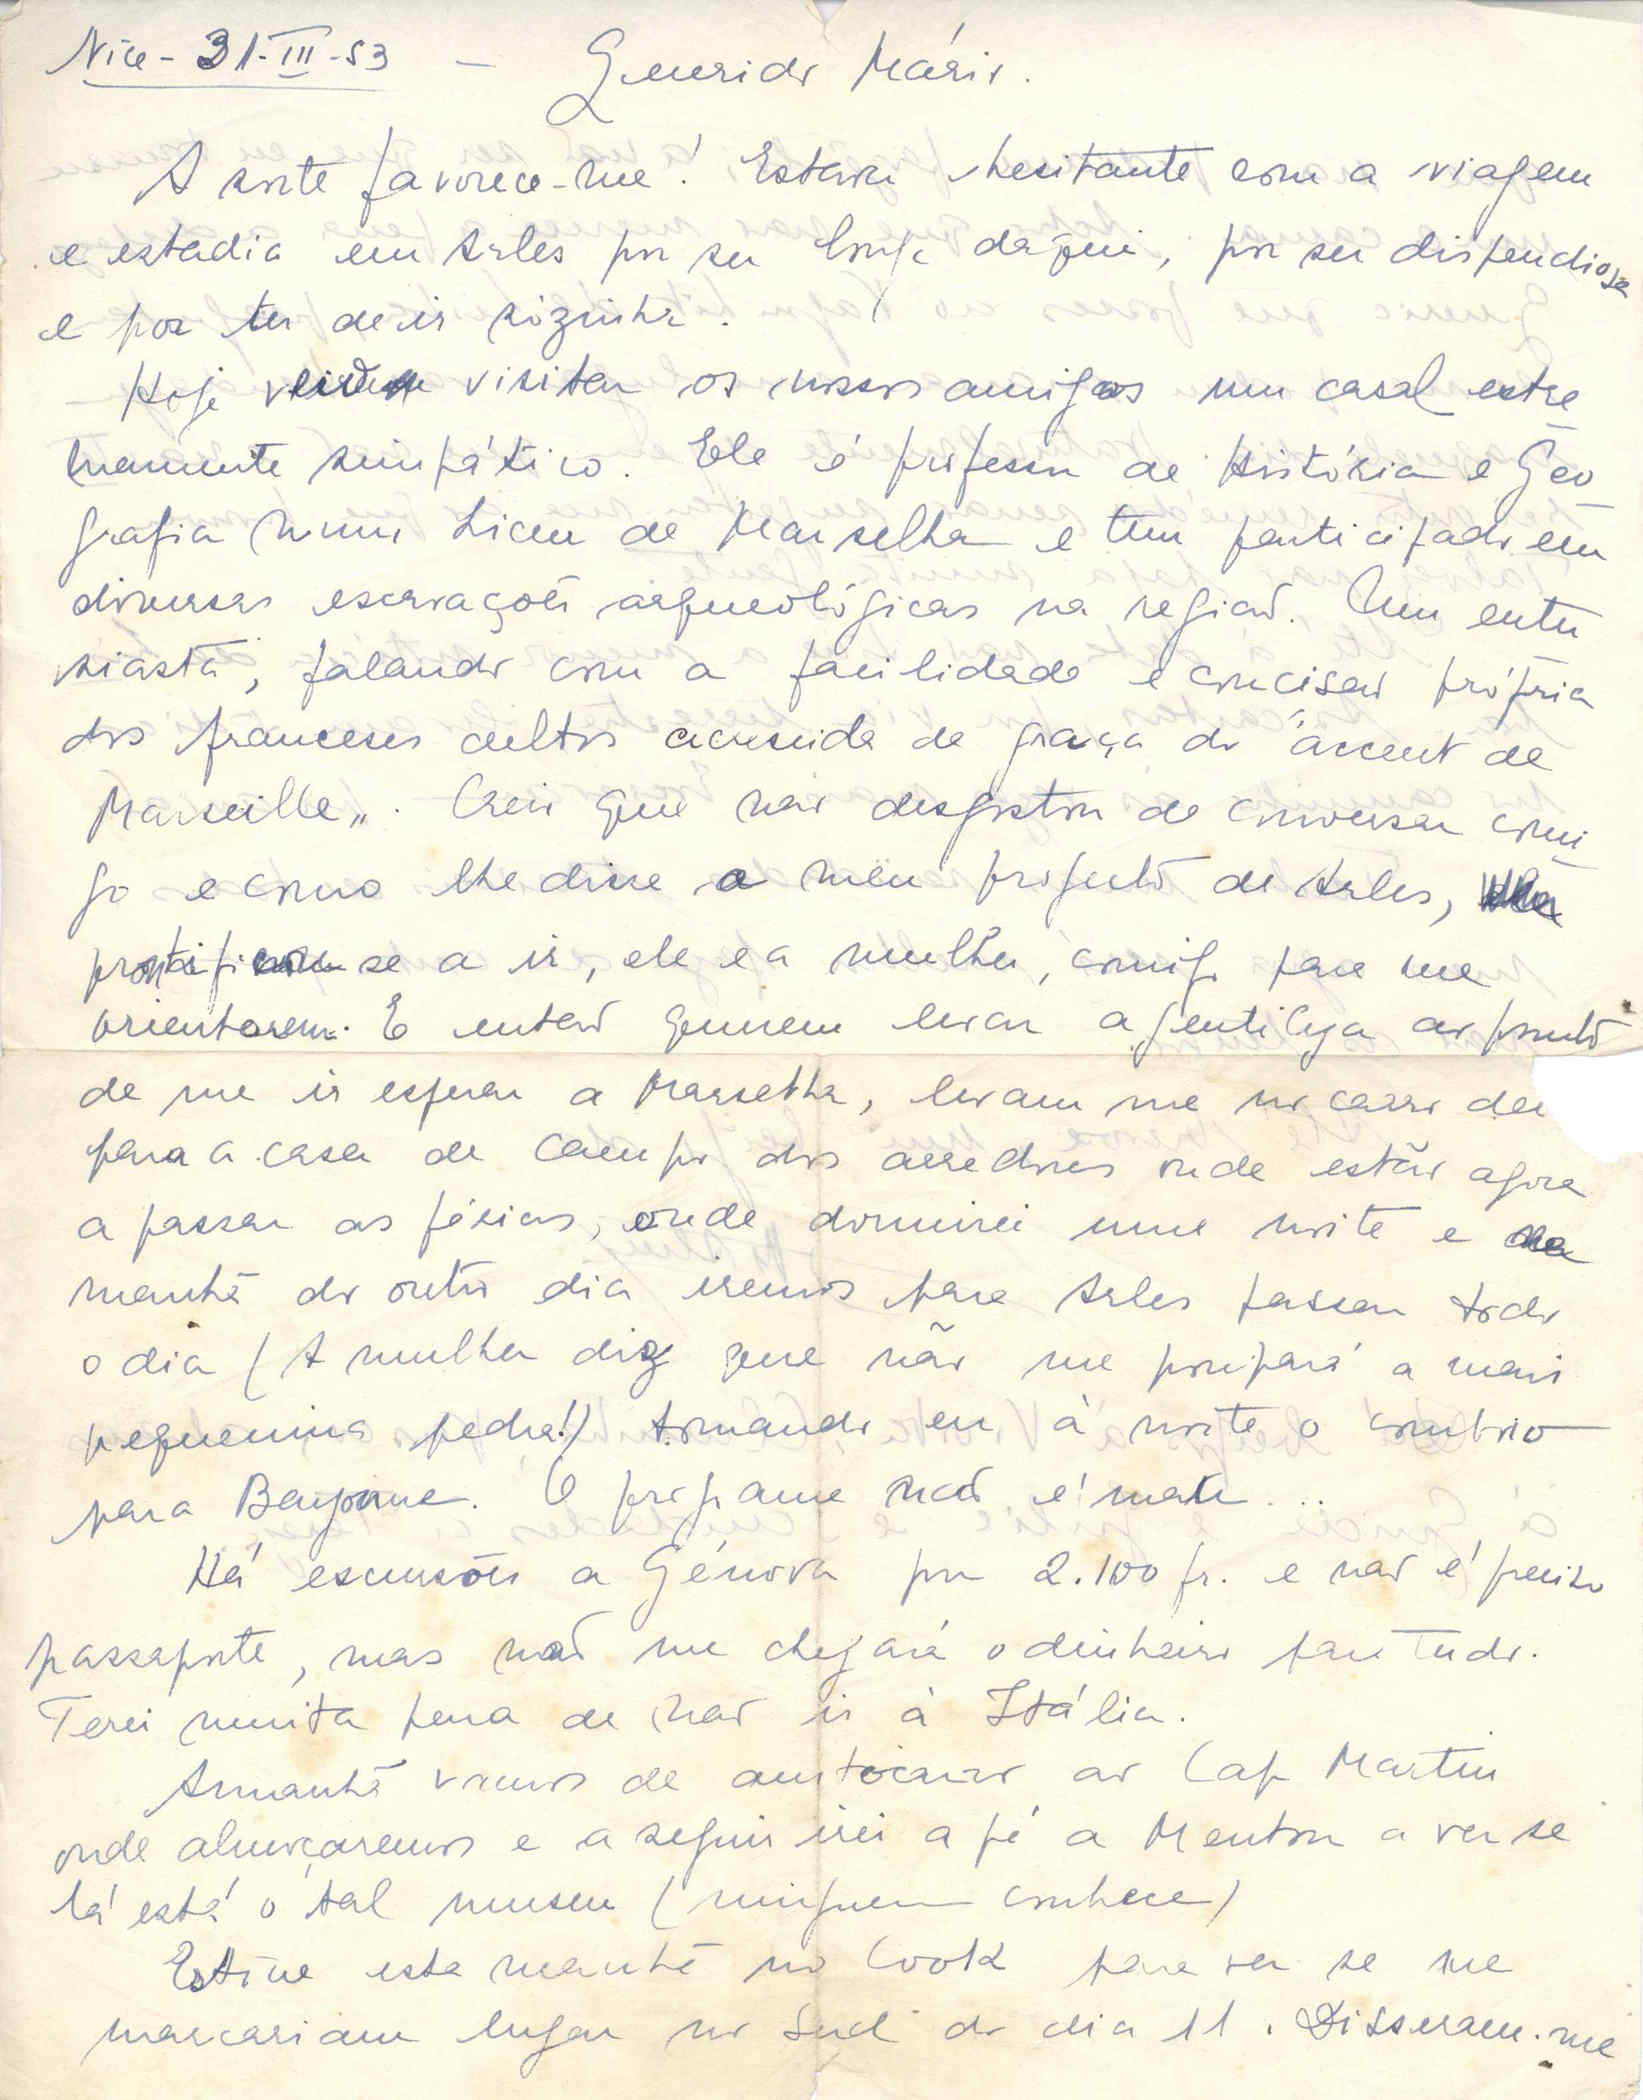 Nice - 31-III-53 - Querido Mário.
A sorte favorece-me! Estava hesitante com a viagem
e estadia em Arles por ser longe daqui, por ser dispendiosa
e por ter de ir sòzinha.
- Hoje vieram visitar os nossos amigos um casal extre
mamente simpático. Ele é professor de História e Geo
grafia num Liceu de Marselha e tem participado em
diversas escavações arqueológicas na região. Um entu
siasta, falando com a facilidade e concisão própria
dos franceses cultos acrescida da graça do "accent de
Marseille". Creio que não desgostou de conversar comi
go e como lhe disse o meu projecto de Arles,
prontificou-se a ir, ele e a mulher, comigo para me
orientarem. E então querem levar a gentileza ao ponto
de me ir esperar a Marselha, levam me no carro
para a casa de campo dos arredores onde estão agora
a passar as férias, onde dormirei uma noite e na
manhã do outro dia iremos para Arles passar todo
o dia (A mulher diz que não me poupará a mais
pequenina pedra!) tomando eu à noite o comboio
para Bayonne. O programa não é mau...
Há excursões a Génova por 2.100 fr. e não é preciso
passaporte, mas não me chegará o dinheiro para tudo.
Terei muita pena de não ir à Itália.
Amanhã vamos de autocarro ao Cap Martin
onde almoçaremos e a seguir irei a pé a Menton a ver se
lá está o tal museu (ninguem conhece)
Estive esta manhã no Cook para ver se me
marcariam lugar no Sud do dia 11. Disseram-me